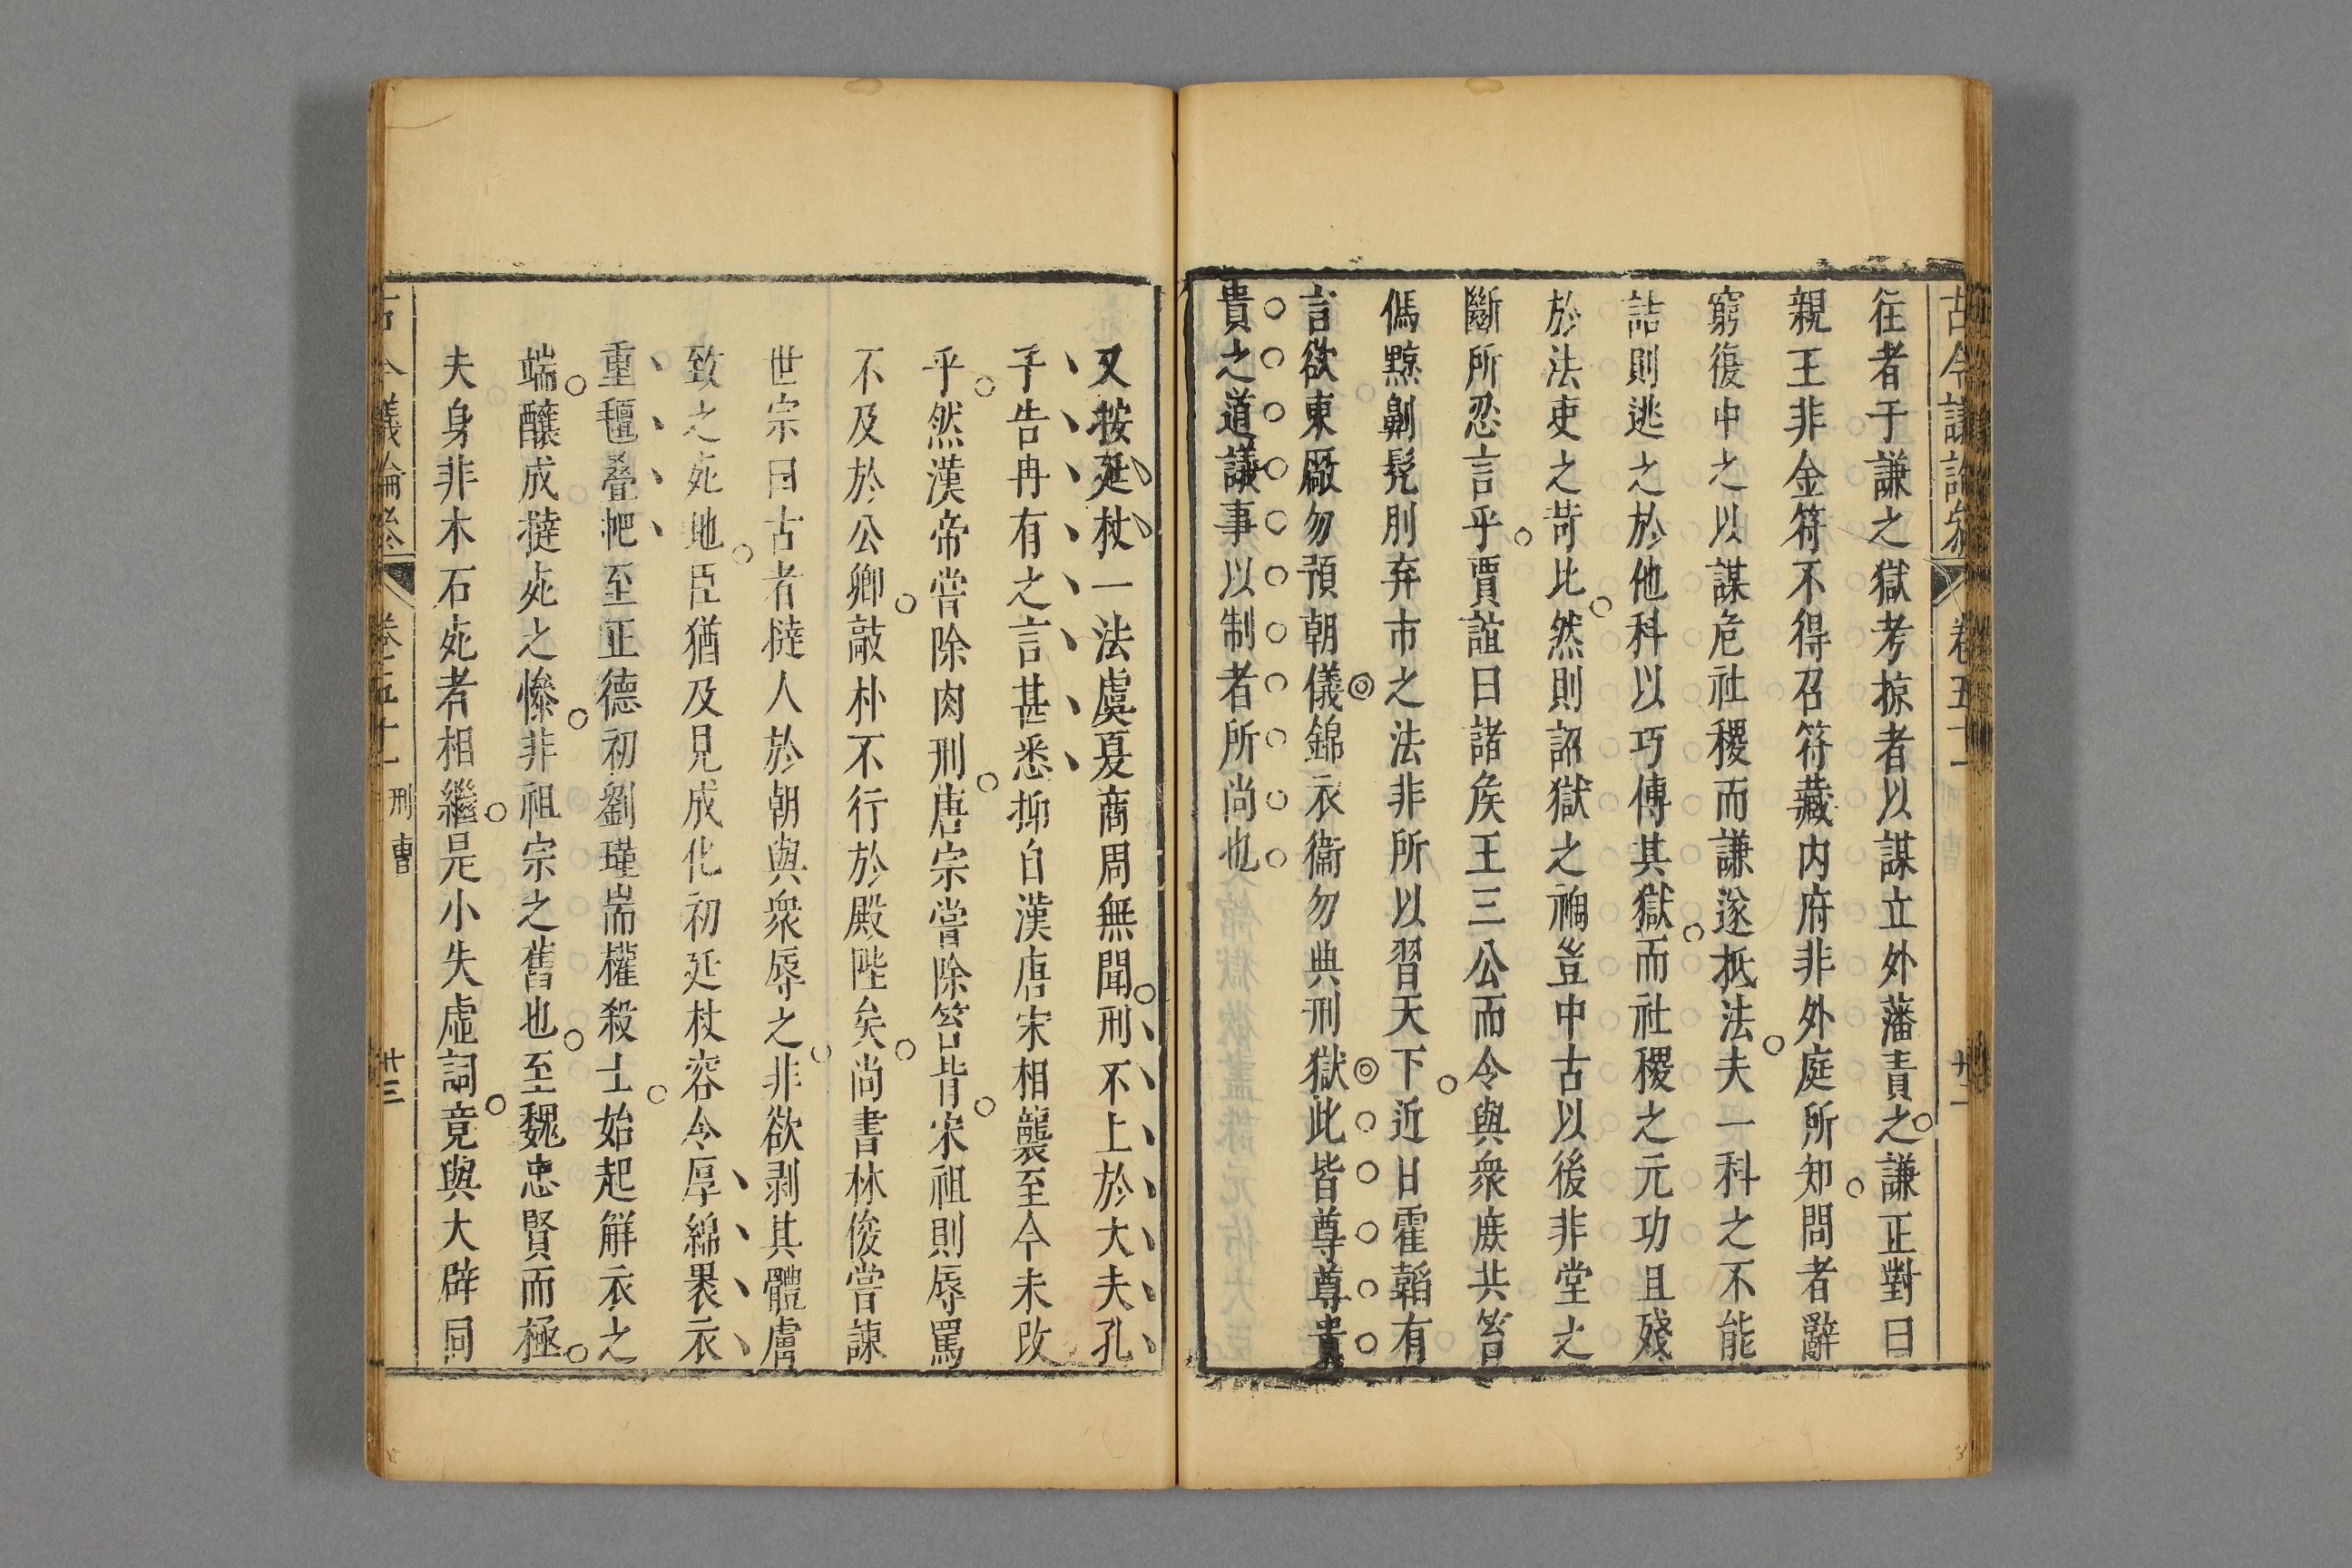 古今議論參 卷五十一 廿二
往者于謙之獄考掠者以謀立外藩責之謙正對曰
親王非金符不得召符藏内府非外庭所知問者辭
窮復中之以謀危社稷而謙遂抵法夫一科之不能
詰則逃之於他科以巧傅其獄而社稷之元功且殘
於法吏之苛比然則詔獄之禍豈中古以後非堂之
斷所忍言乎賈誼曰諸矦王三公而令與衆庶共笞
傌黥劓髡刖弃市之法非所以習天下近日霍韜有
言欲東厰勿預朝儀錦衣衞勿典刑獄此皆尊尊貴
貴之道議事以制者所尚也
又按延杖一法虞夏商周無聞刑不上於大夫孔
子告冉有之言甚悉抑自漢唐宋相襲至今未攺
乎然漢帝嘗除肉刑唐宗嘗除笞背宋祖則辱罵
不及於公卿敲朴不行於殿陛矣尚書林俊嘗諫
世宗曰古者撻人於朝與衆辱之非欲剥其體膚
致之死地臣猶及見成化初延杖容令厚綿褁衣
重氊疊帊至正德初劉瑾耑權殺士始起解衣之
端釀成撻死之慘非祖宗之舊也至魏忠賢而極
夫身非木石死者相繼是小失虛詞竟與大辟同
古今議論參 卷五十一 刑曹 廿三